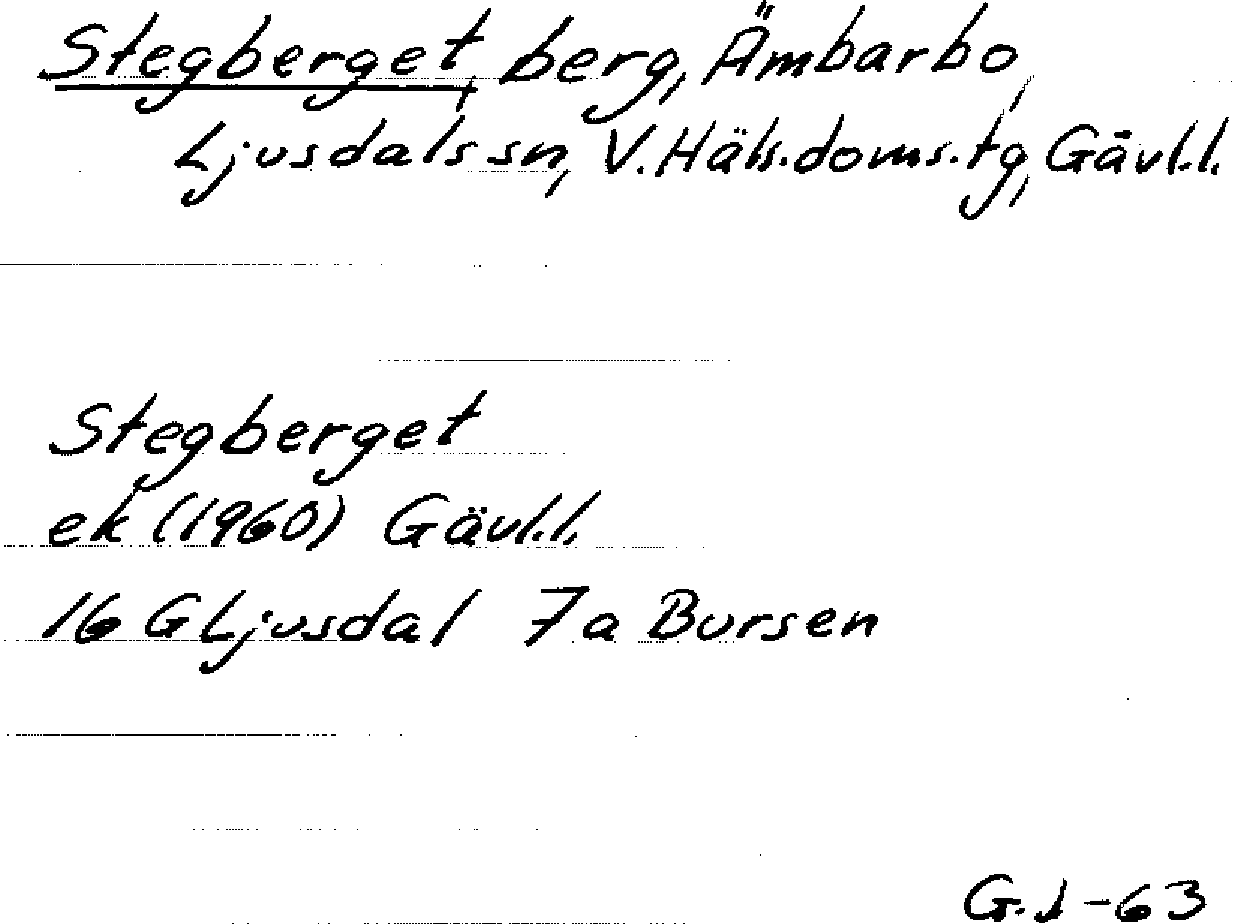 Stegberget, berg, Ämbarbo,
Ljusdals sn, V. Häls. doms. tg, Gävl. l.
Stegberget
ek (1960) Gävl. l.
16 G Ljusdal 7a Bursen
G. J -63